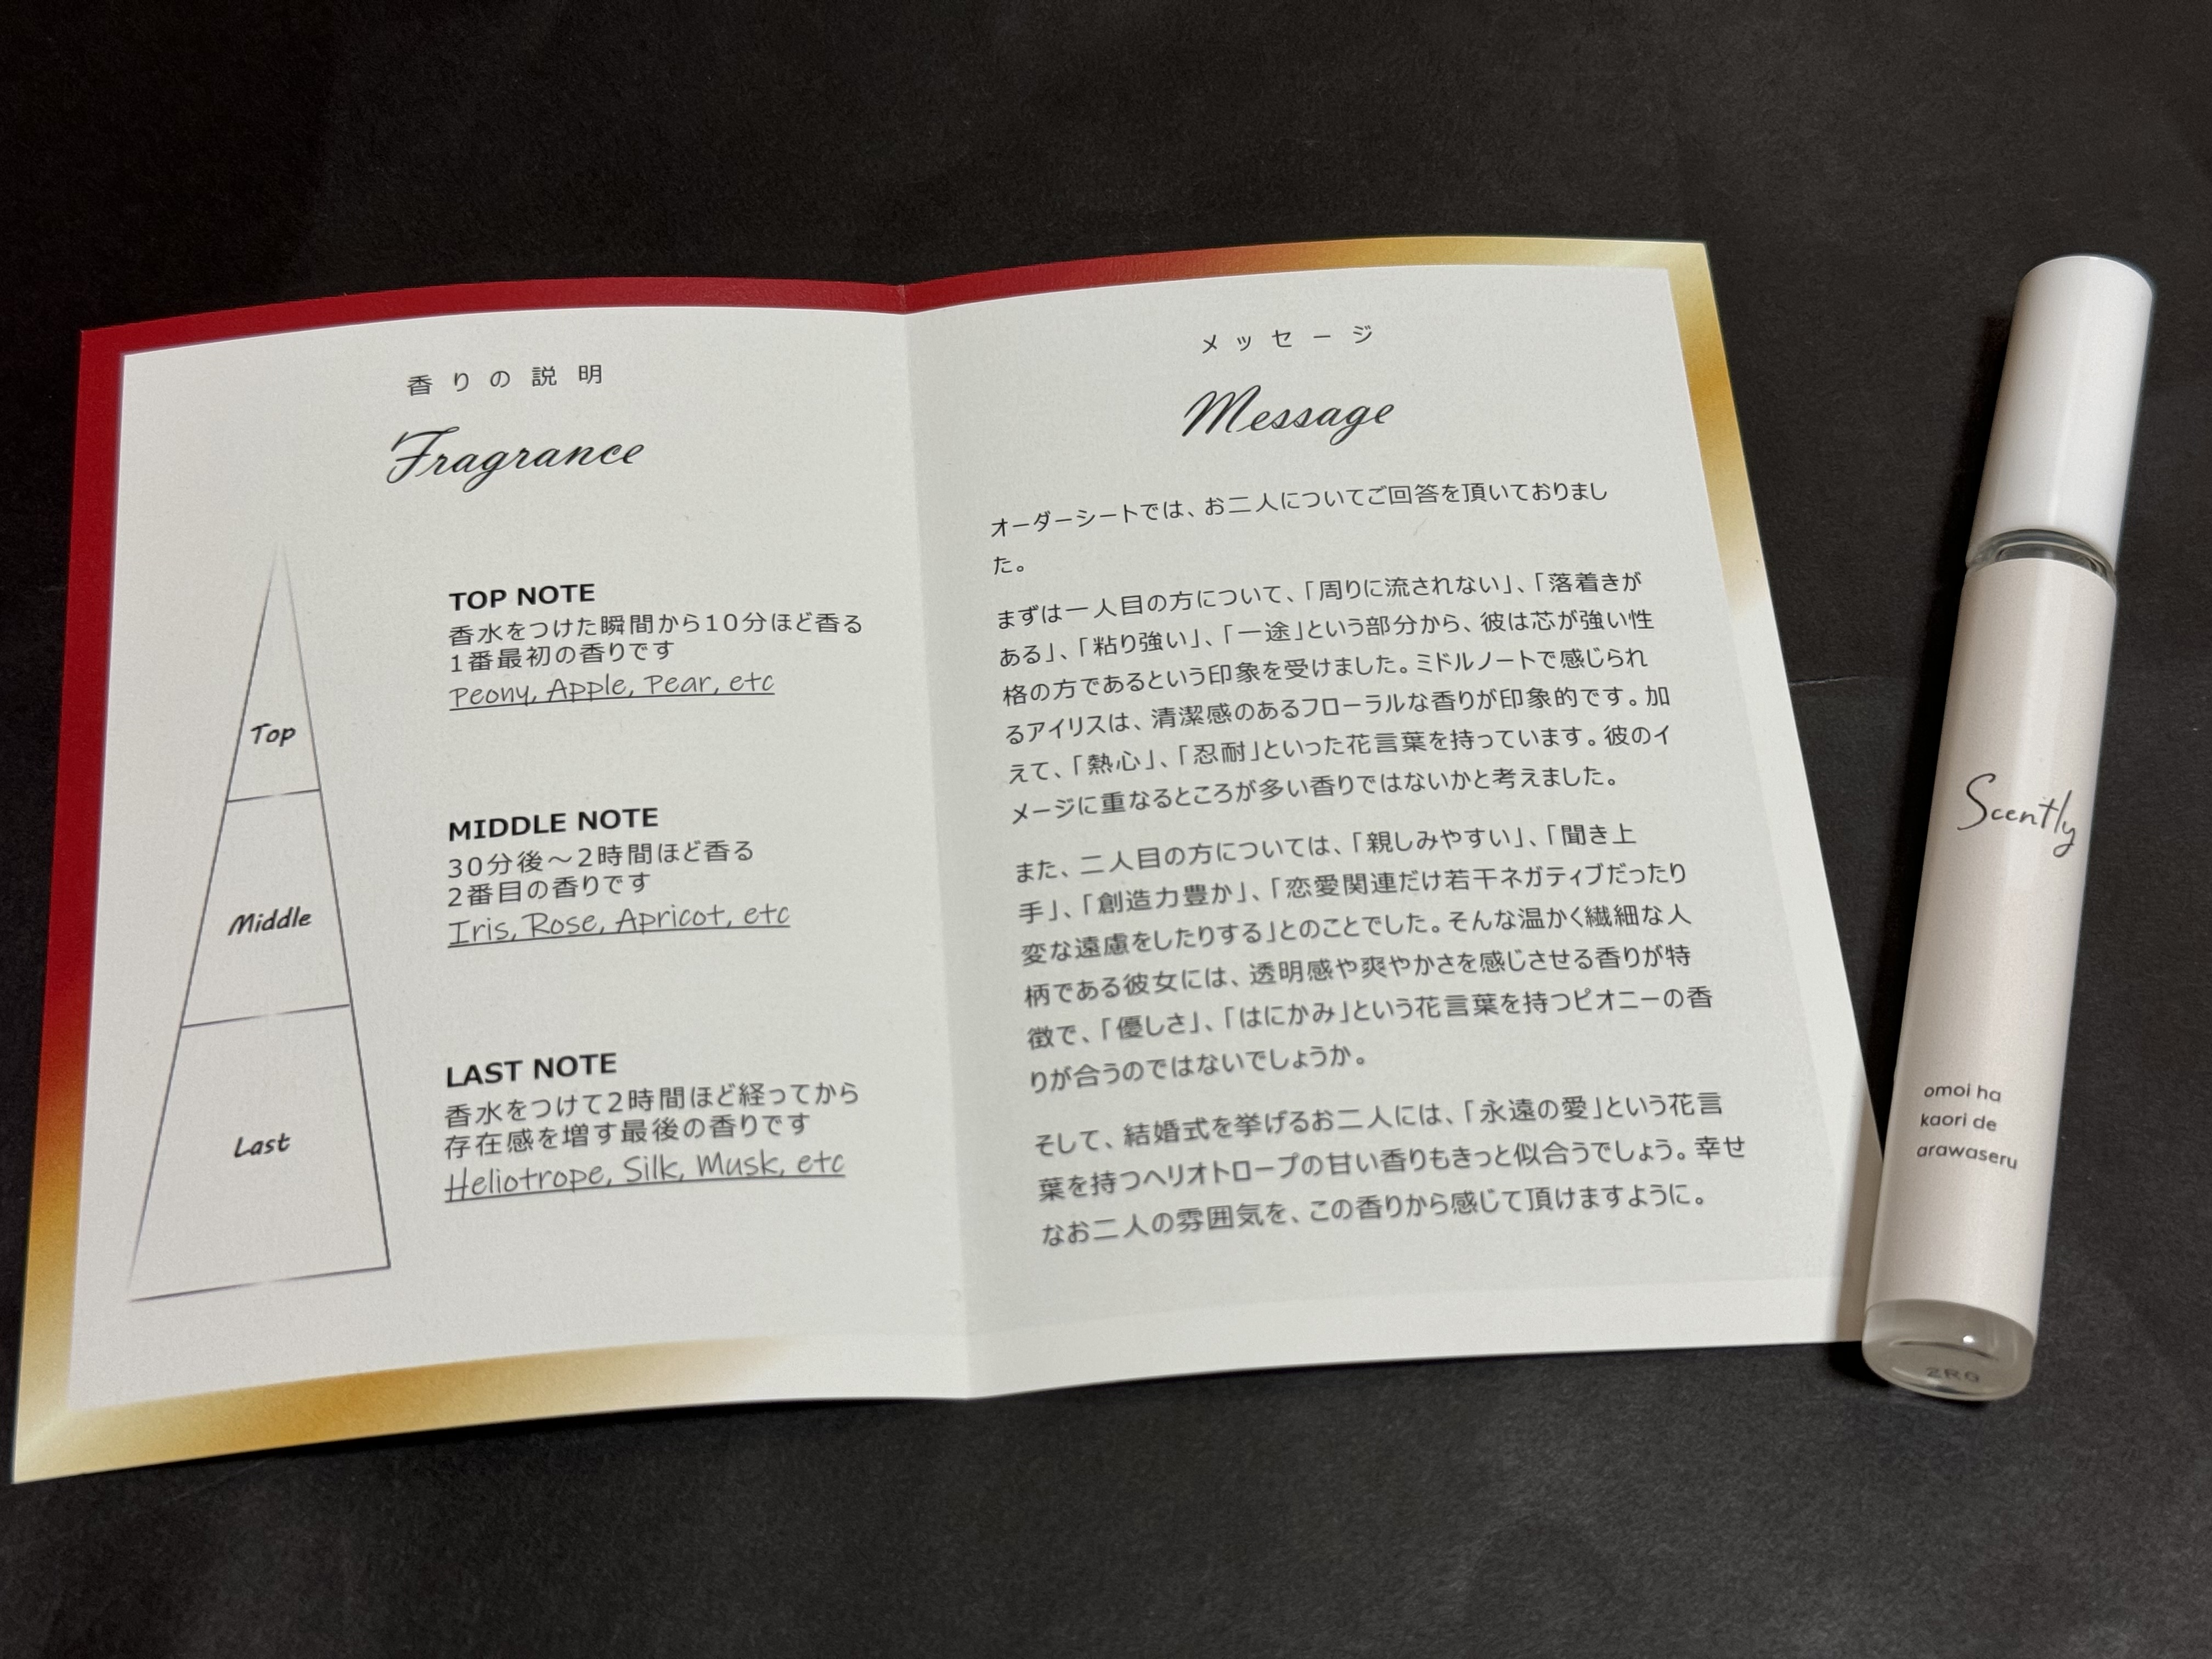 香りの説明
Fragrance
TOP NOTE
香水をつけた瞬間から10分ほど香る
1番最初の香りです
Peony, Apple, Pear, etc
MIDDLE NOTE
30分後～2時間ほど香る
2番目の香りです
Iris, Rose, Apricot, etc
LAST NOTE
香水をつけて2時間ほど経ってから
存在感を増す最後の香りです
Heliotrope, Silk, Musk, etc
Top
Middle
Last
メッセージ
Message
オーダーシートでは、お二人についてご回答を頂いておりまし
た。
まずは一人目の方について、「周りに流されない」、「落着きが
ある」、「粘り強い」、「一途」という部分から、彼は芯が強い性
格の方であるという印象を受けました。ミドルノートで感じられ
るアイリスは、清潔感のあるフローラルな香りが印象的です。加
えて、「熱心」、「忍耐」といった花言葉を持っています。彼のイ
メージに重なるところが多い香りではないかと考えました。
また、二人目の方については、「親しみやすい」、「聞き上
手」、「創造力豊か」、「恋愛関連だけ若干ネガティブだったり
変な遠慮をしたりする」とのことでした。そんな温かく繊細な人
柄である彼女には、透明感や爽やかさを感じさせる香りが特
徴で、「優しさ」、「はにかみ」という花言葉を持つピオニーの香
りが合うのではないでしょうか。
そして、結婚式を挙げるお二人には、「永遠の愛」という花言
葉を持つヘリオトロープの甘い香りもきっと似合うでしょう。幸せ
なお二人の雰囲気を、この香りから感じて頂けますように。
Scently
omoi ha
kaori de
arawaseru
2RG